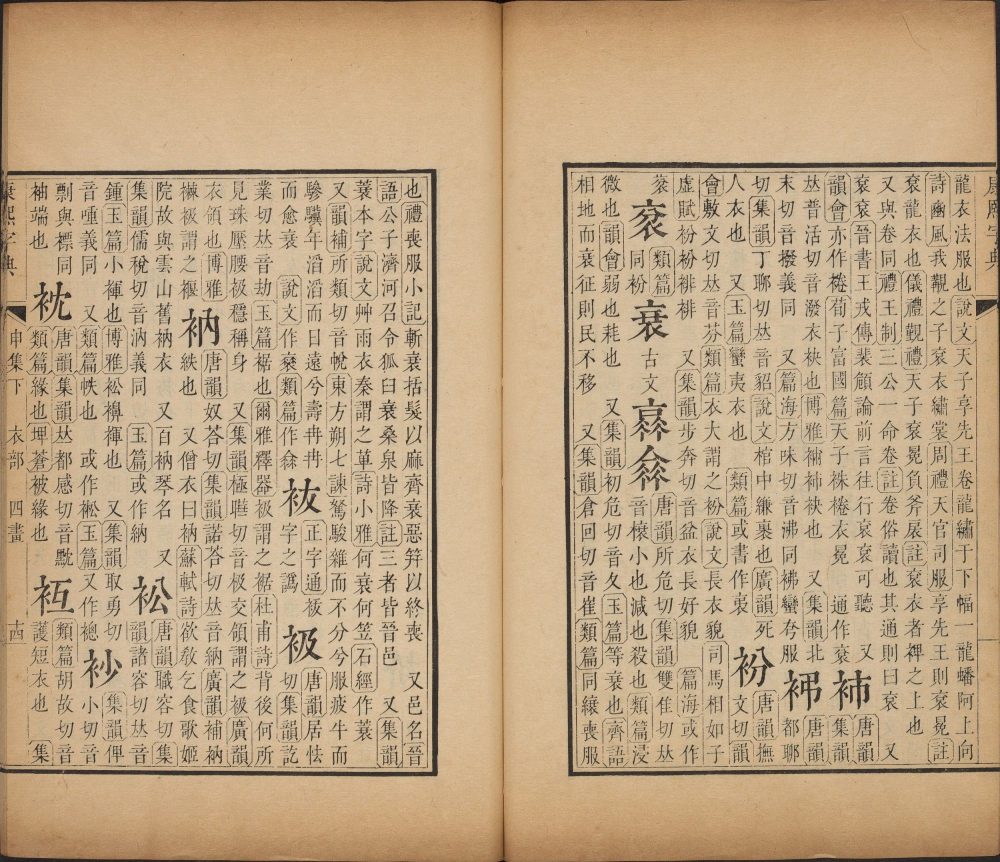 康熙字典
龍衣法服也說文天子享先王卷龍繡于下幅一龍蟠阿上向
詩豳風我覯之子袞衣繡裳周禮天官司服享先王則袞冕註
袞龍衣也儀禮覲禮天子袞冕負斧扆註袞衣者裨之上也
又與卷同禮王制三公一命卷註卷俗讀也其通則曰袞 又
袞袞晉書王戎傳裴頠論前言往行袞袞可聽 又
韻會亦作裷荀子富國篇天子袾裷衣冕 通作袞 𧘟 唐韻集韻
𠀤普活切音潑衣袂也博雅𧘟袂也 又集韻北
末切音撥義同 又篇海方味切音沸同袚蠻夸服 𧘨 唐韻都聊
切集韻丁聊切𠀤音貂說文棺中縑裏也廣韻死
人衣也 又玉篇蠻夷衣也 類篇或書作 衯 唐韻撫文切韻
會敷文切𠀤音芬類篇衣大謂之衯說文長衣貌司馬相如子
虛賦衯衯裶裶 又集韻步奔切音盆衣長好貌 篇海或作
衮 類篇同衯 衰 古文 唐韻所危切集韻雙隹切𠀤
音榱小也減也殺也類篇浸
微也韻會弱也耗也 又集韻初危切音夊玉篇等衰也齊語
相地而衰征則民不移 又集韻倉回切音崔類篇同縗喪服
也禮喪服小記斬衰括髮以麻齊衰惡笄以終喪 又邑名晉
語公子濟河召令狐臼衰桑泉皆降註三者皆晉邑 又集韻
蓑本字說文艸雨衣秦謂之萆詩小雅何衰何笠石經作蓑
又韻補所類切音帨東方朔七諫駑駿雜而不分兮服疲牛而
驂驥年滔滔而日遠兮壽冉冉 袚 正字通袚
而愈衰 說文作衰類篇作 字之譌 衱 唐韻居怯切集韻訖
業切𠀤音劫玉篇裾也爾雅釋器衱謂之裾杜甫詩背後何所
見珠壓腰衱穩稱身 又集韻極曄切音极交領謂之衱廣韻
衣領也博雅 衲 唐韻奴荅切集韻諾荅切𠀤音納廣韻補衲
襋衱謂之褗 紩也 又僧衣曰衲蘇軾詩欲敎乞食歌姬
院故與雲山舊衲衣 又百衲琴名 又
集韻儒稅切音汭義同 玉篇或作納 衳 唐韻職容切集韻諸容切𠀤音
鍾玉篇小褌也博雅衳襣褌也 又集韻取勇切
音㗰義同 又類篇帙也 或作㡆玉篇又作䘺 𧘡 集韻俾小切音
剽與標同 衴 唐韻集韻𠀤都感切音黕 冱 類篇胡故切音
袖端也 類篇緣也埤蒼被緣也 護短衣也 集
康熙字典 申集下 衣部 四畫 十四